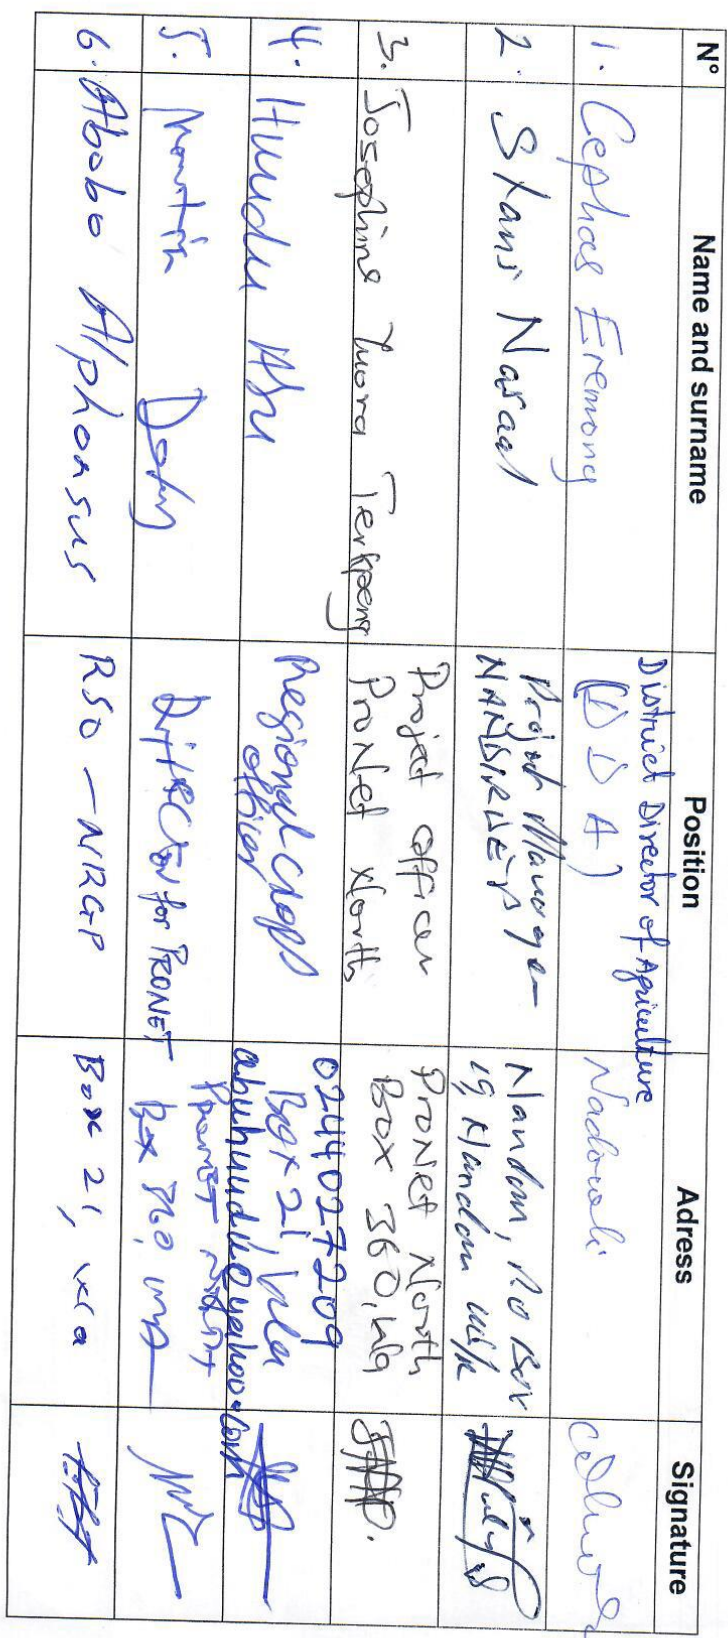 N° Name and surname Position Adress Signature
1. Cephas Eremong District Director of Agriculture (DDA) Nadowli
2. Stanis Nasaal Project Manager Nandom, P.O Box 19, Nandom
3. Josephine Terkpeng Project Officer ProNet North ProNet North Box 360, Wa
4. Humudu Abu Regional Crops Officer 0244027209 Box 21, Wa abuhumudu@yahoo.com
5. Martin Dery Director for PRONET PRONET NORTH Box 360, Wa
6. Ababo Alphonsus RSO - NRGP Box 21, Wa